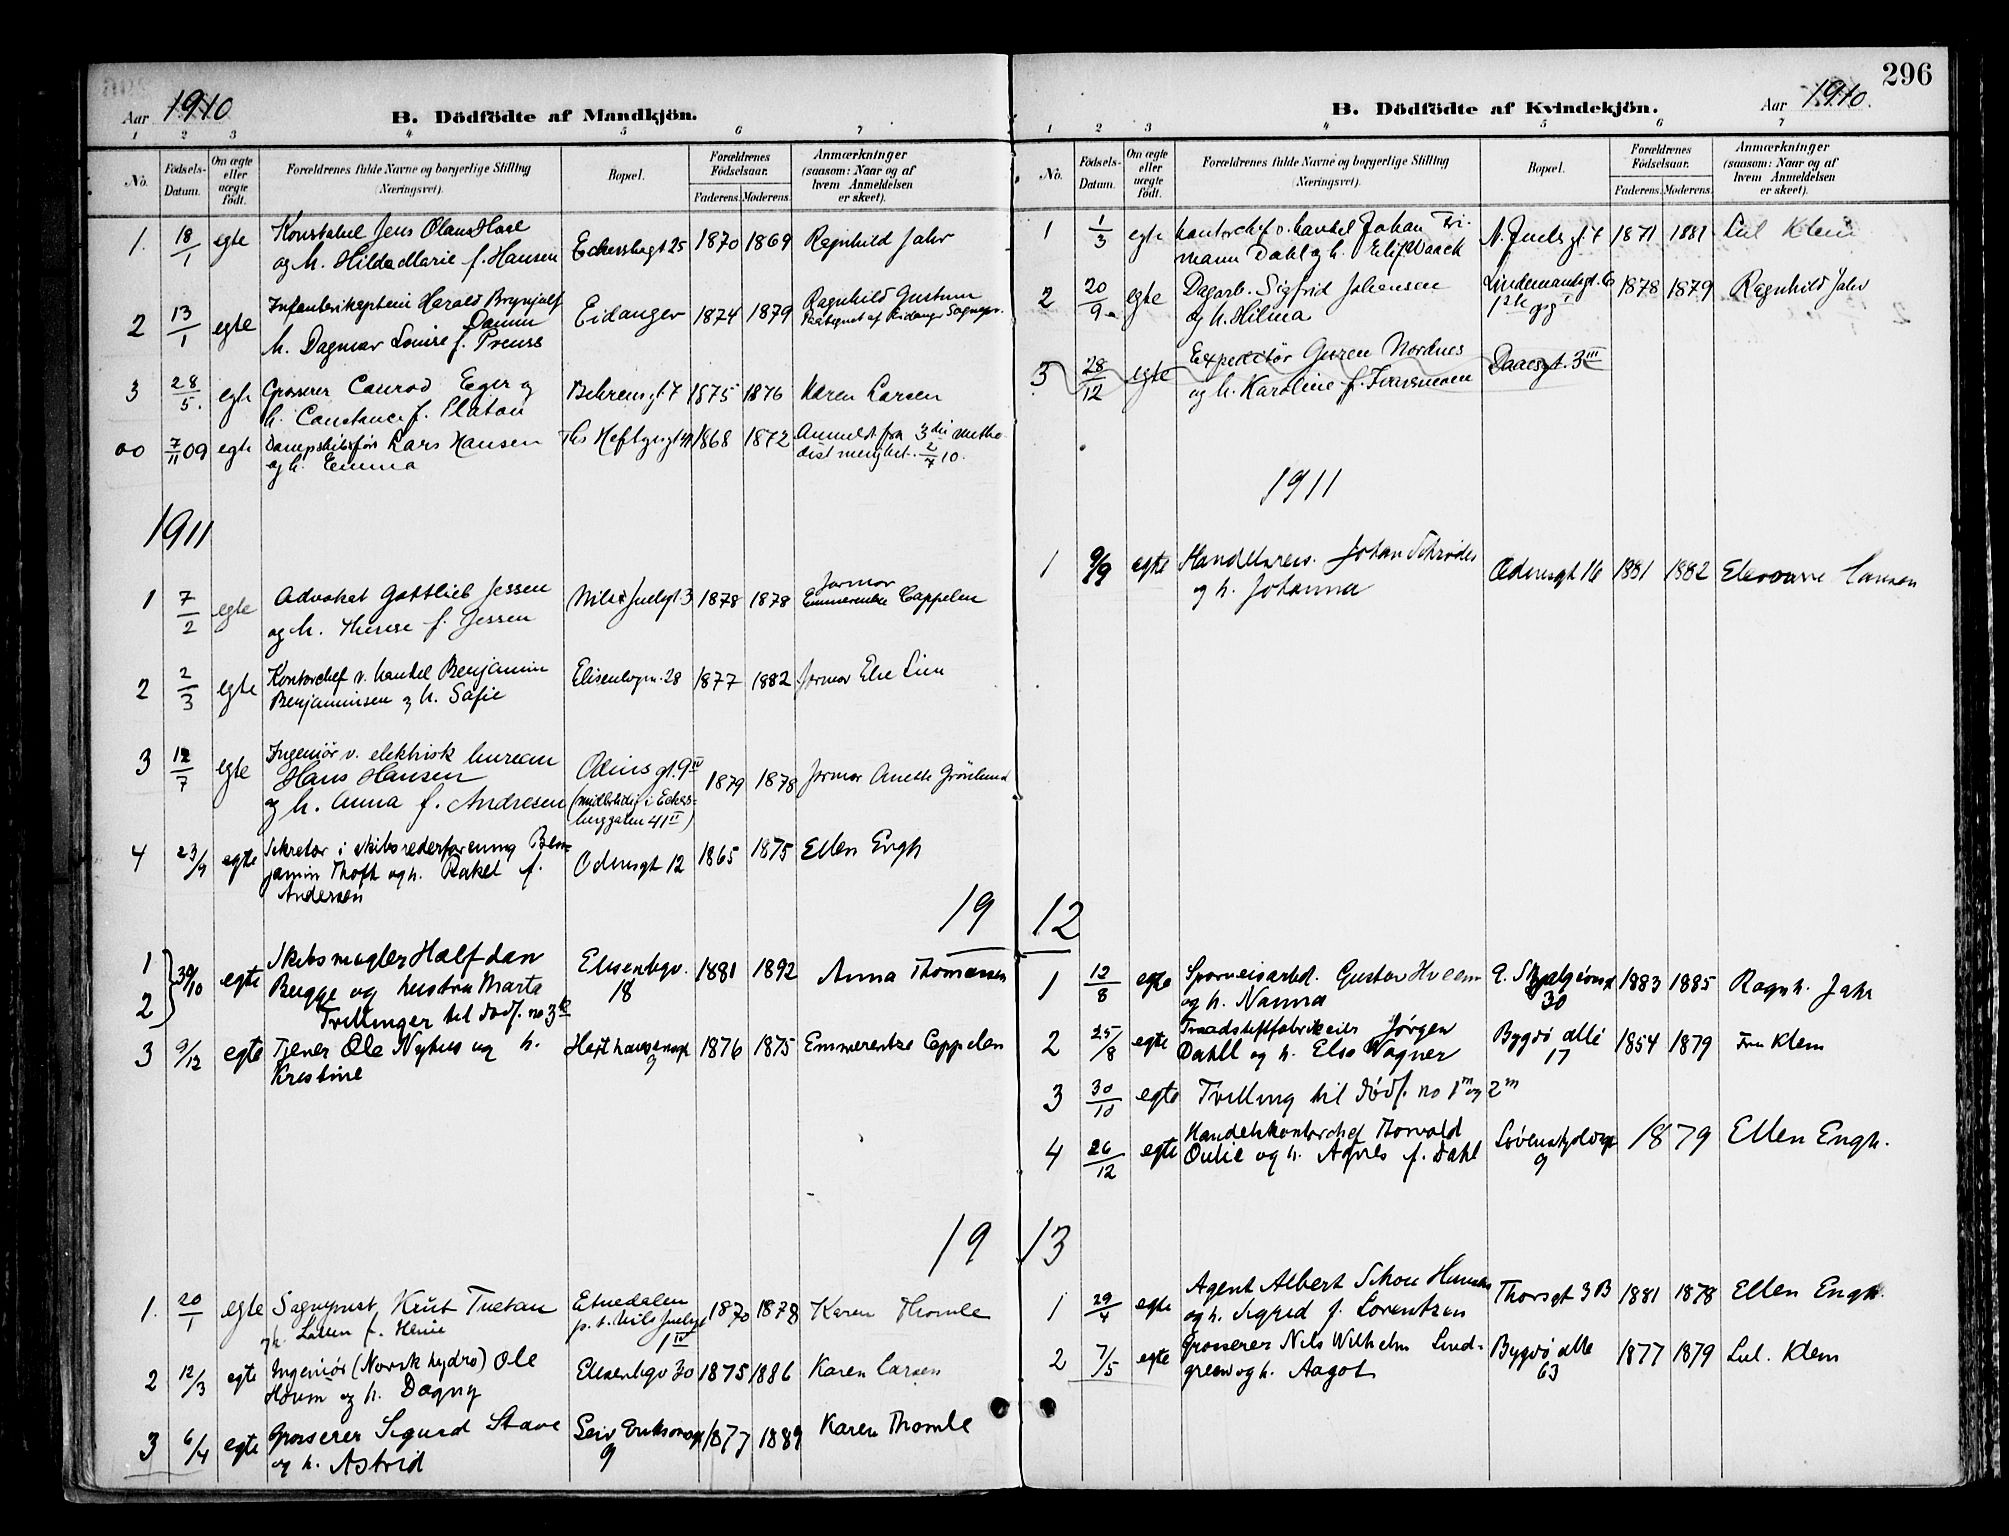 Aar 1910
B. Dödfödte af Mandkjön.
1 2 3 4 5 6 7
No.
Födsels-Datum.
Om ægte eller uægte födt.
Forældrenes fulde Navne og borgerlige Stilling (Næringsvei).
Bopæl.
Forældrenes Födselsaar.
Faderens. Moderens.
Anmærkninger (saasom: Naar og af hvem Anmeldelsen er skeet).
1. 18/1 egte Konstabel Jens Olaus Hoel Eckersbgt 25 1870 1869 Ragnhild Jahr
og h. Hilda Marie f. Hansen
2 13/1 egte Infanterikaptein Harald Brynjulf Eidanger 1874 1879 Ragnhild
Damm
h. Dagmar Louise f. Preuss
3 28/5. egte Grosserer Conrad Eger og Behrensgt 7 1875 1876 Karen Larsen
h. Constance f. Platou
00 7/11 09 egte Dampskibsfør. Lars Hansen Ths Heftyesgt 1868 1872 Anmeldt fra 3die Metho-
og h. Emma dist menighet. 2/7 10.
1911
1 7/2 egte Advokat Gottlieb Jessen Nils Juelsgt 3 1878 1878 Jormor
og h. Therese f. Jessen Emmerentze Cappelen
2 2/3 egte Kontorchef v. handel Benjamin Elisenbgvn. 28 1877 1882 Jormor Else Lien
Benjaminsen og h. Sofie
3 12/7 egte Ingeniør v. elektrisk bureau Odins gt. 9 IV 1879 1878 Jormor Anette Grönlund
Hans Hansen
og h. Anna f. Andresen (midlertidig i Eckers-
berggaten 41 II)
4 23/9 egte Sekretær i skibsrederforening Ben- Odinsgt 12 1865 1875 Ellen Engh
jamin Thoft og h. Rakel f.
Andersen
1912
1 2 } 30/10 egte Skibsmægler Halfdan Elisenbgv. 18 1881 1892 Anna Thomassen
Bugge og hustru Marta
Tvillinger til dødf. no 3 k
3 9/12 egte Tjener Ole Nyhus og h. 9 1876 1875 Emmerentze Cappelen
Kristine
1913
1. 20/1 egte Sogneprest Knut Tuetan Etnedalen 1870 1878 Karen Thomle
og h. f. p. t. Nils Juelsgt
1 IV
2 12/3 egte Ingeniør (Norsk hydro) Ole Elisenbgv 30 1875 1886 Karen Larsen
Hovim og h. Dagny
3 6/4 egte Grosserer Sigurd Stave Leiv Eriksonsgt 9 1877 1889 Karen Thomle
og h. Astrid
296
B. Dödfödte af Kvindekjön.
Aar 1910.
1 2 3 4 5 6 7
No.
Födsels-Datum.
Om ægte eller uægte födt.
Forældrenes fulde Navne og borgerlige Stilling (Næringsvei).
Bopæl.
Forældrenes Födselsaar.
Faderens. Moderens.
Anmærkninger (saasom: Naar og af hvem Anmeldelsen er skeet).
1 1/3 egte Kontorchef v. handel Johan Tri- N. Juels gt. 1871 1881 Lul Klem
mann Dahl og h. Waack
2 20/9 egte Dagarb. Sigfrid Johansen Lindemansgt. 1878 1879 Ragnhild Jahr
og h. Hilma
3 28/12 egte Expeditør Nordnes Daaesgt. 3 III
og h. Karoline f.
1911
1 9/9 egte Handelsreis. Johan Schrøder Odinsgt 16 1881 1882 Eleonore
og h. Johanna
1 12/8 egte Sporveisarbd. Gustav Hveem 30 1883 1885 Ragnh. Jahr
og h. Nanna
2 25/8 egte Traadstiftfabrikeier Jørgen Bygdö allé 17 1854 1879 Fru Klem
Dahll og h. Else Wagner
3 30/10 egte Tvilling til dødf. no 1 m og 2 m
4 26/12 egte Handelskontorchef Thorvald Løvenskjoldsgt 9 1879 Ellen Engh.
Oulie og h. Agnes f. Dahl
1 29/4 egte Agent Albert Schou Thorsgt 3 B 1881 1878 Ellen Engh.
og h. Sigrid f. Lorentzen
2 7/5 egte Grosserer Nils Wilhelm Lind- Bygdö alle 63 1877 1879 Lul. Klem
green og h. Aagot